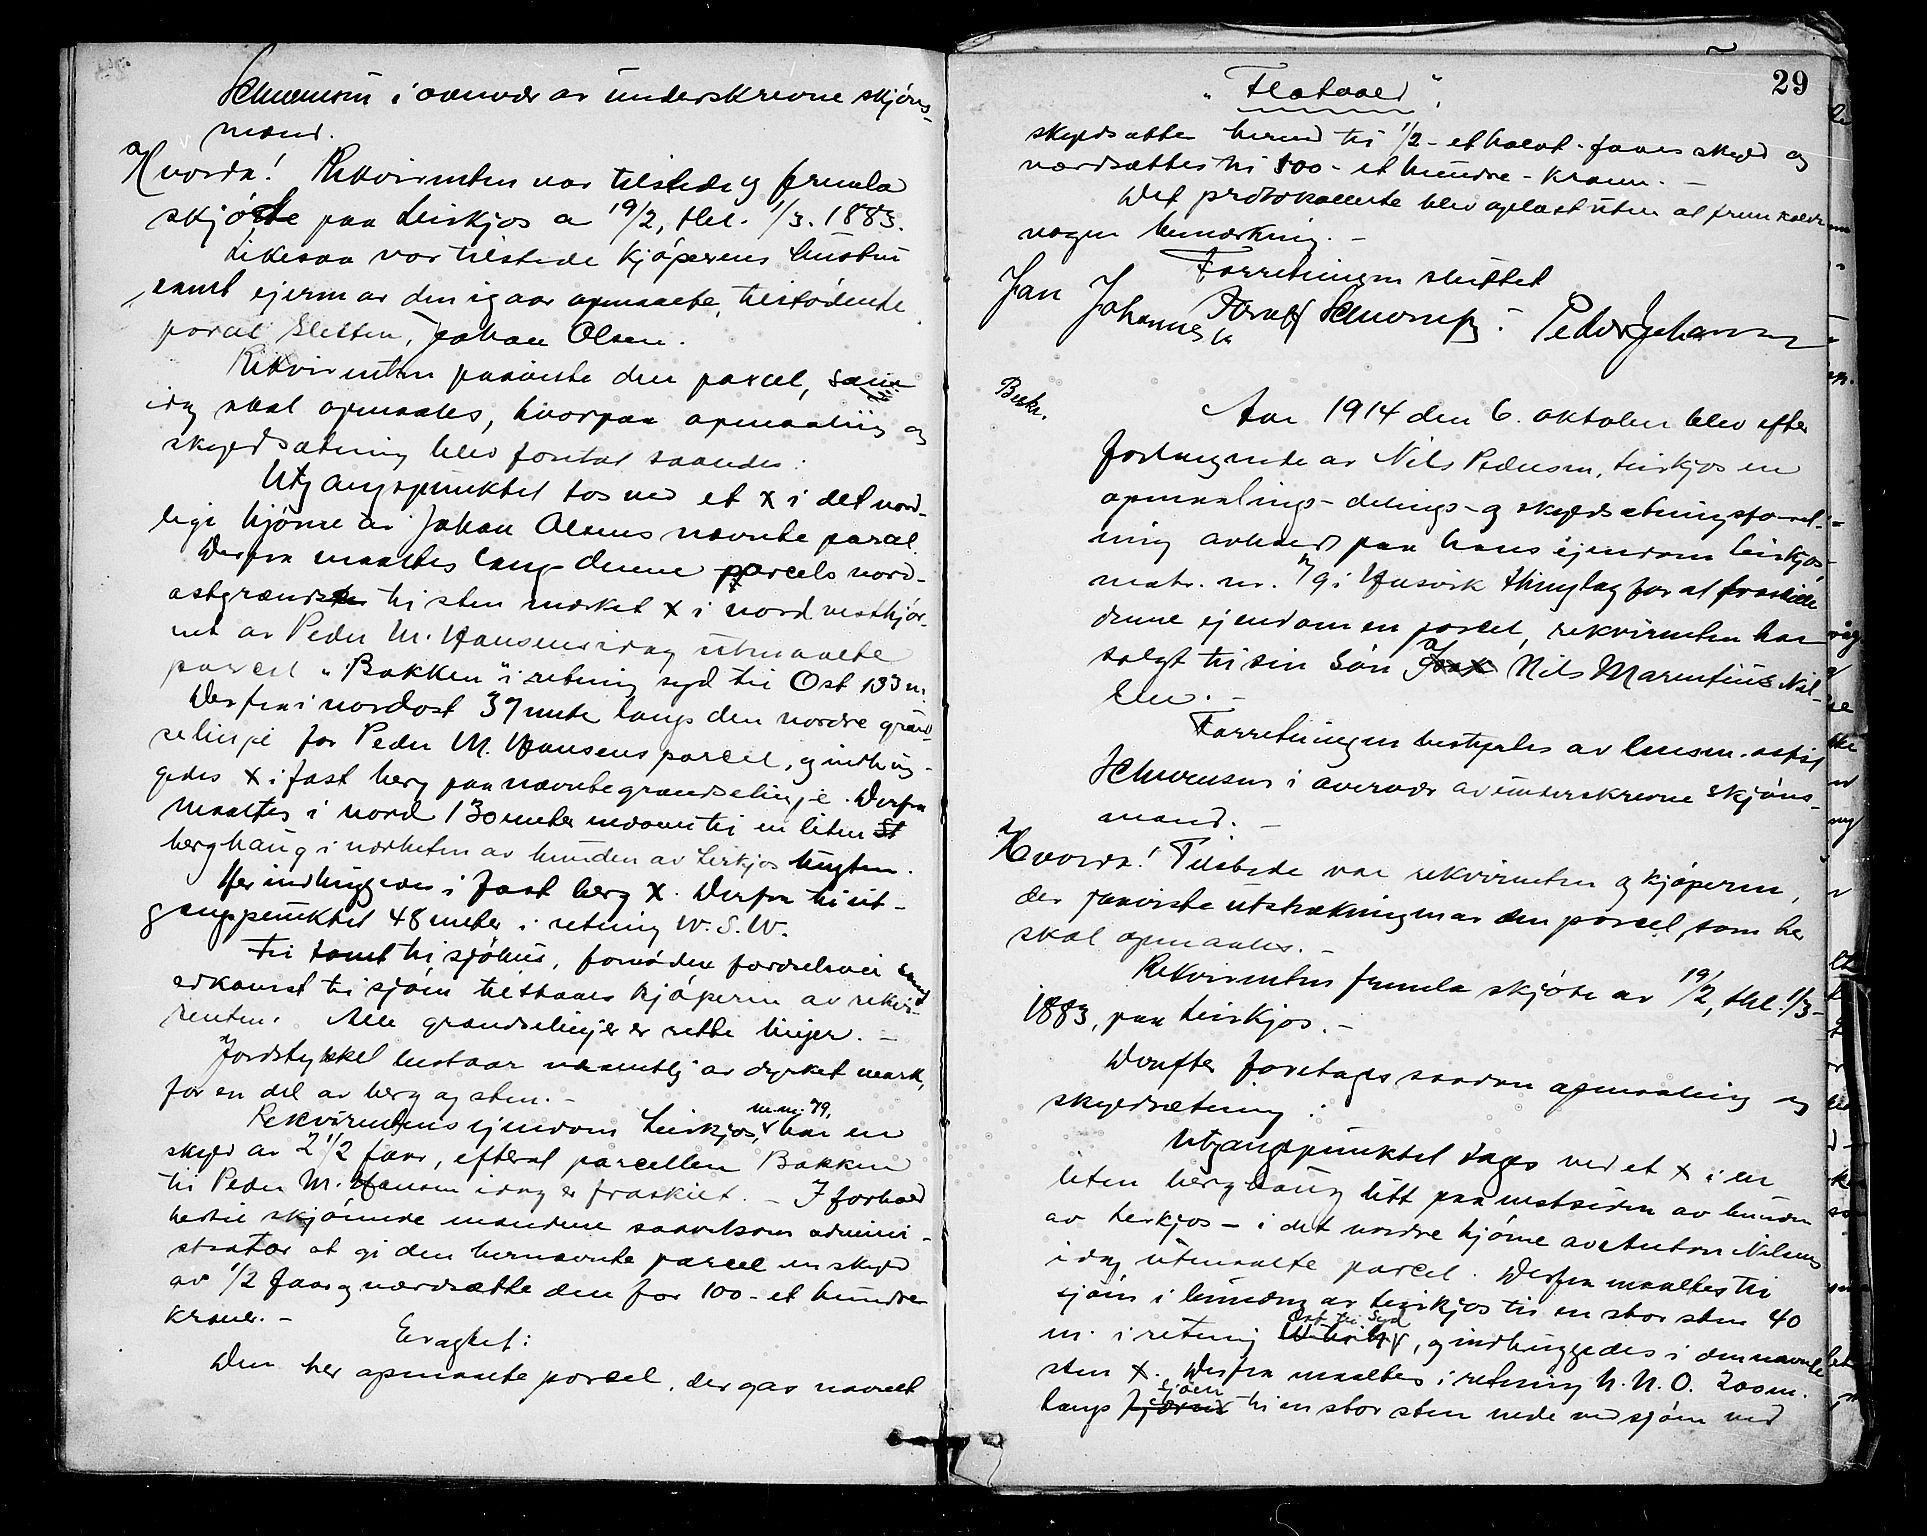 Schwensen i overvær av underskrevne skjöns-
mænd.
Hvorda! Rekvirenten var tilstede og fremla
skjöte paa Leirkjos a 19/2, thl. 1/3. 1883.
Likesaa var tilstede kjöperens hustru
samt ejeren av den igaar opmaalte, tilstödente
parcel Sletten, Johan Olsen.
Rekvirenten paaviste den parcel, som
idag skal opmaales, hvorpaa opmaaling og
skyldsætning blev foretat saaledes:
Utgangspunktet tos ved et x i det nord-
lige hjörne av Johan Olsens nævnte parcel.
Derfra maaltes langs denne parcels nord-
ostgrændse til sten merket x i nordvesthjör-
net av Peder M. Hansens idag utmaalte
parcel "Bakken" i retning syd til Ost 133 m.
Derfra i nordost 37 meter langs den nordre grænd-
selinje for Peder M. Hansens parcel, og indhug-
gedes x i fast berg paa nævnte grændselinje. Derfra
maaltes i nord 130 meter nedover til en liten
berghaug i nærheten av bunden av Leirkjos bugten.
Her indhuggedes i fast berg x. Derfra til ut-
gangspunktet 48 meter i retning W. S. W.
Til tomt til sjöhus, fornöden færdselsvei samt
adkomst til sjöen tilstaaes kjöperen av rekvi-
renten. Alle grændselinjer er rette linjer. -
Jordstykket bestaar væsentlig av dyrket mark,
for en del av berg og sten. -
Rekvirentens ejendom Leirkjos, m.nr. 79, har en
skyld av 2 1/2 faar, efterat parcellen Bakken
til Peder M. Hansen idag er fraskilt. - I forhold
hertil skjönnede mændene saavelsom admini-
strator at gi den hernævnte parcel en skyld
av 1/2 faar og værdsætte den for 100 - et hundre
kroner. -
Eragtet:
Den her opmaalte parcel, der gas navnet
29
"Flatvold",
skyldsattes herved til 1/2 - et halvt - faars skyld og
værdsættes til 100 - et hundre - kroner. -
Det protokollerte blev oplæst uten at fremkalde
nogen bemerkning. -
Forretningen sluttet
Jan Johannes Schwensen. Peder Johansen
Beskr.
Aar 1914 den 6. oktober blev efter
forlangende av Nils Pedersen, Leirkjos en
opmaalings- delings- og skyldsætningsforret-
ning avholdt paa hans ejendom Leirkjos,
matr. nr. 79 i Husvik thinglag for at fraskille
denne ejendom en parcel, rekvirenten har
solgt til sin sön Nils Marentius Nil-
sen. -
Forretningen bestyrtes av lensm. aspir
Schwensen i overvær av underskrevne skjöns-
mænd. -
Hvorda! Tilstede var rekvirenten og kjöperen,
der paaviste utstrækningen av den parcel, som her
skal opmaales. -
Rekvirenten fremla skjöte av 19/2, thl. 1/3 -
1883, paa Leirkjos. -
Derefter foretages saadan opmaaling og
skyldsætning:
Utgangspunktet tages ved et x i en
liten berghaug litt paa vestsiden av bunden
av Leirkjos - i det nordre hjörne av Anton Nilsens
idag utmaalte parcel. Derfra maaltes til
sjöen i bunden av Leirkjos til en stor sten 40
m. i retning Ost til Syd, og indhuggedes i den nævnte
sten x. Derfra maaltes i retning N. N. O. 200 m.
langs sjöen til en stor sten nede ved sjöen ved